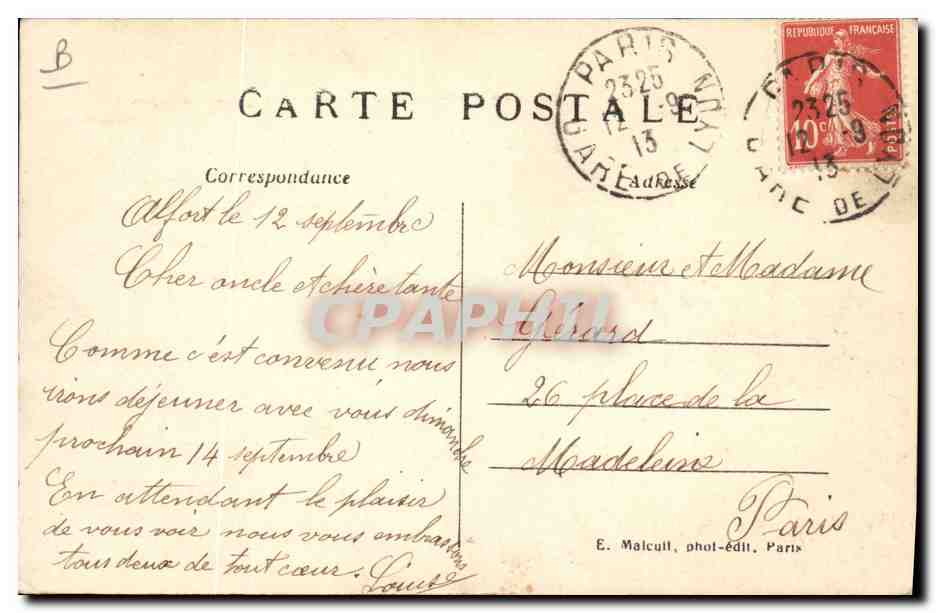 B
CARTE POSTALE
PARIS
23 25
12 - 9
13
GARE DE LYON
REPUBLIQUE FRANÇAISE
10 c
POSTES
PARIS
23 25
12 - 9
13
GARE DE LYON
Correspondance
Alfort le 12 septembre
Cher oncle et chère tante
Comme c'est convenu nous
irons déjeuner avec vous dimanche
prochain 14 septembre
En attendant le plaisir
de vous voir nous vous embrassons
tous deux de tout cœur. Louise
Adresse
Monsieur et Madame
Gérard
26 place de la
Madeleine
Paris
E. Malcuit, phot-édit, Paris
CPAPHIL